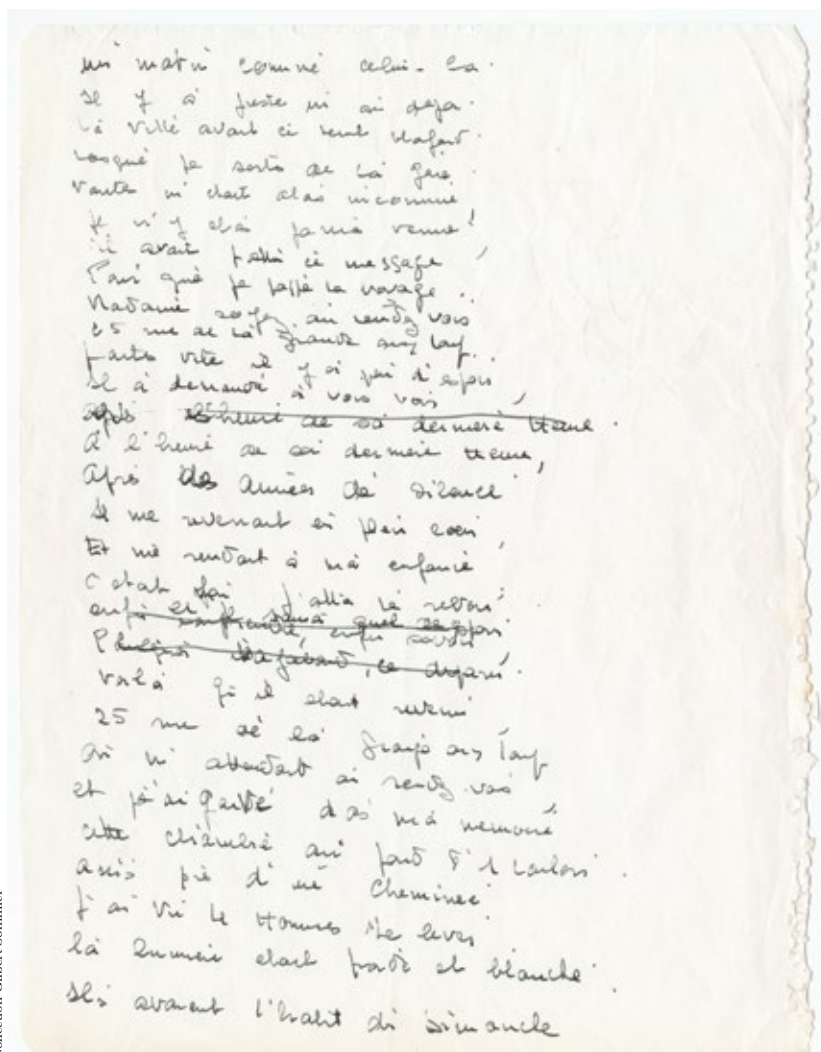 un matin comme celui-la.
Il y a juste un an deja.
La ville avait ce teint blafard.
Lorsque je sortis de la gare.
Nantes m'etait alors inconnue
je n'y etais jamais venue!
il avait fallu ce message
Pour que je fasse le voyage..
Madame soyez au rendez vous
25 rue de la Grange aux loup..
faites vite il y a peu d'espoir
Il a demandé a vous voir
après l'heure de sa derniere Heure.
A l'heure de sa derniere Heure,
Après des années de silence
Il me revenait en plein coeur
Et me rendait à mon enfance
C'etait j'allais le revoir
enfin et enfin savoir
vagabond, ce disparu.
voila qu'il etait revenu
25 rue de la Grange aux loup
on m'attendait au rendez vous
et j'ai gardé dans ma memoire
cette chambre au fond d'1 couloir.
assis près d'une Cheminée
J'ai vu 4 Hommes se lever
la lumiere etait froide et blanche.
Ils avaient l'habit du dimanche
Gilbert Sommier